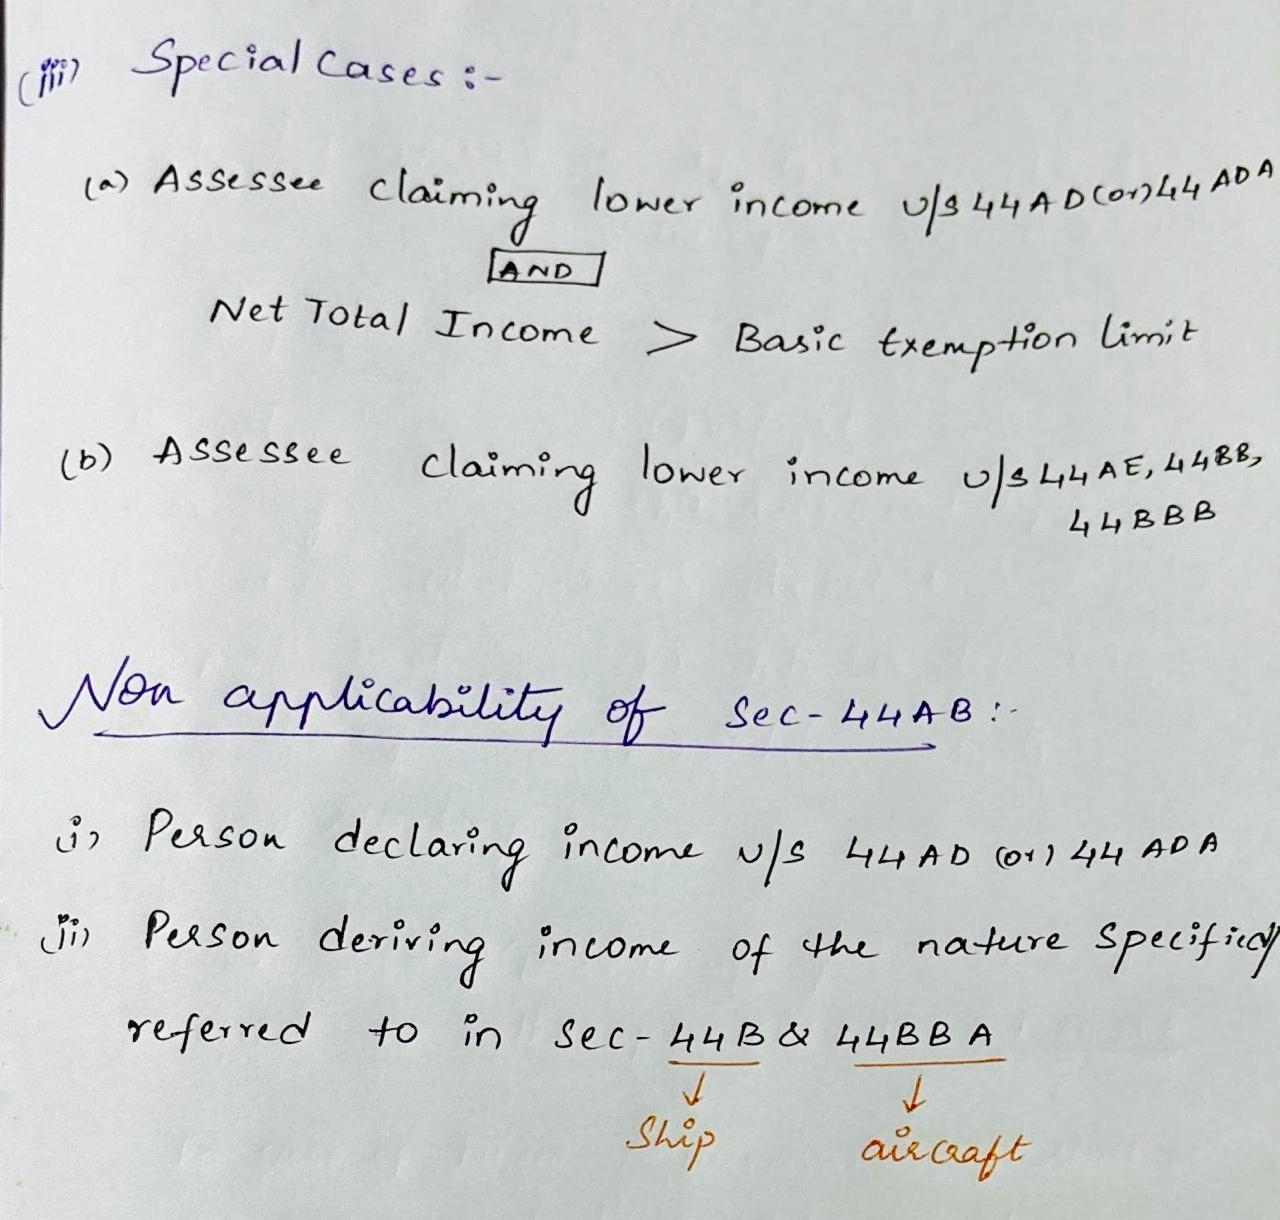 (iii) Special Cases :-
(a) Assessee claiming lower income u/s 44AD (or) 44ADA
AND
Net Total Income > Basic Exemption limit
(b) Assessee claiming lower income u/s 44AE, 44BB,
44BBB
Non applicability of Sec-44AB :-
i) Person declaring income u/s 44AD (or) 44ADA
ii) Person deriving income of the nature specified
referred to in Sec-44B & 44BBA
↓ ↓
Ship aircraft